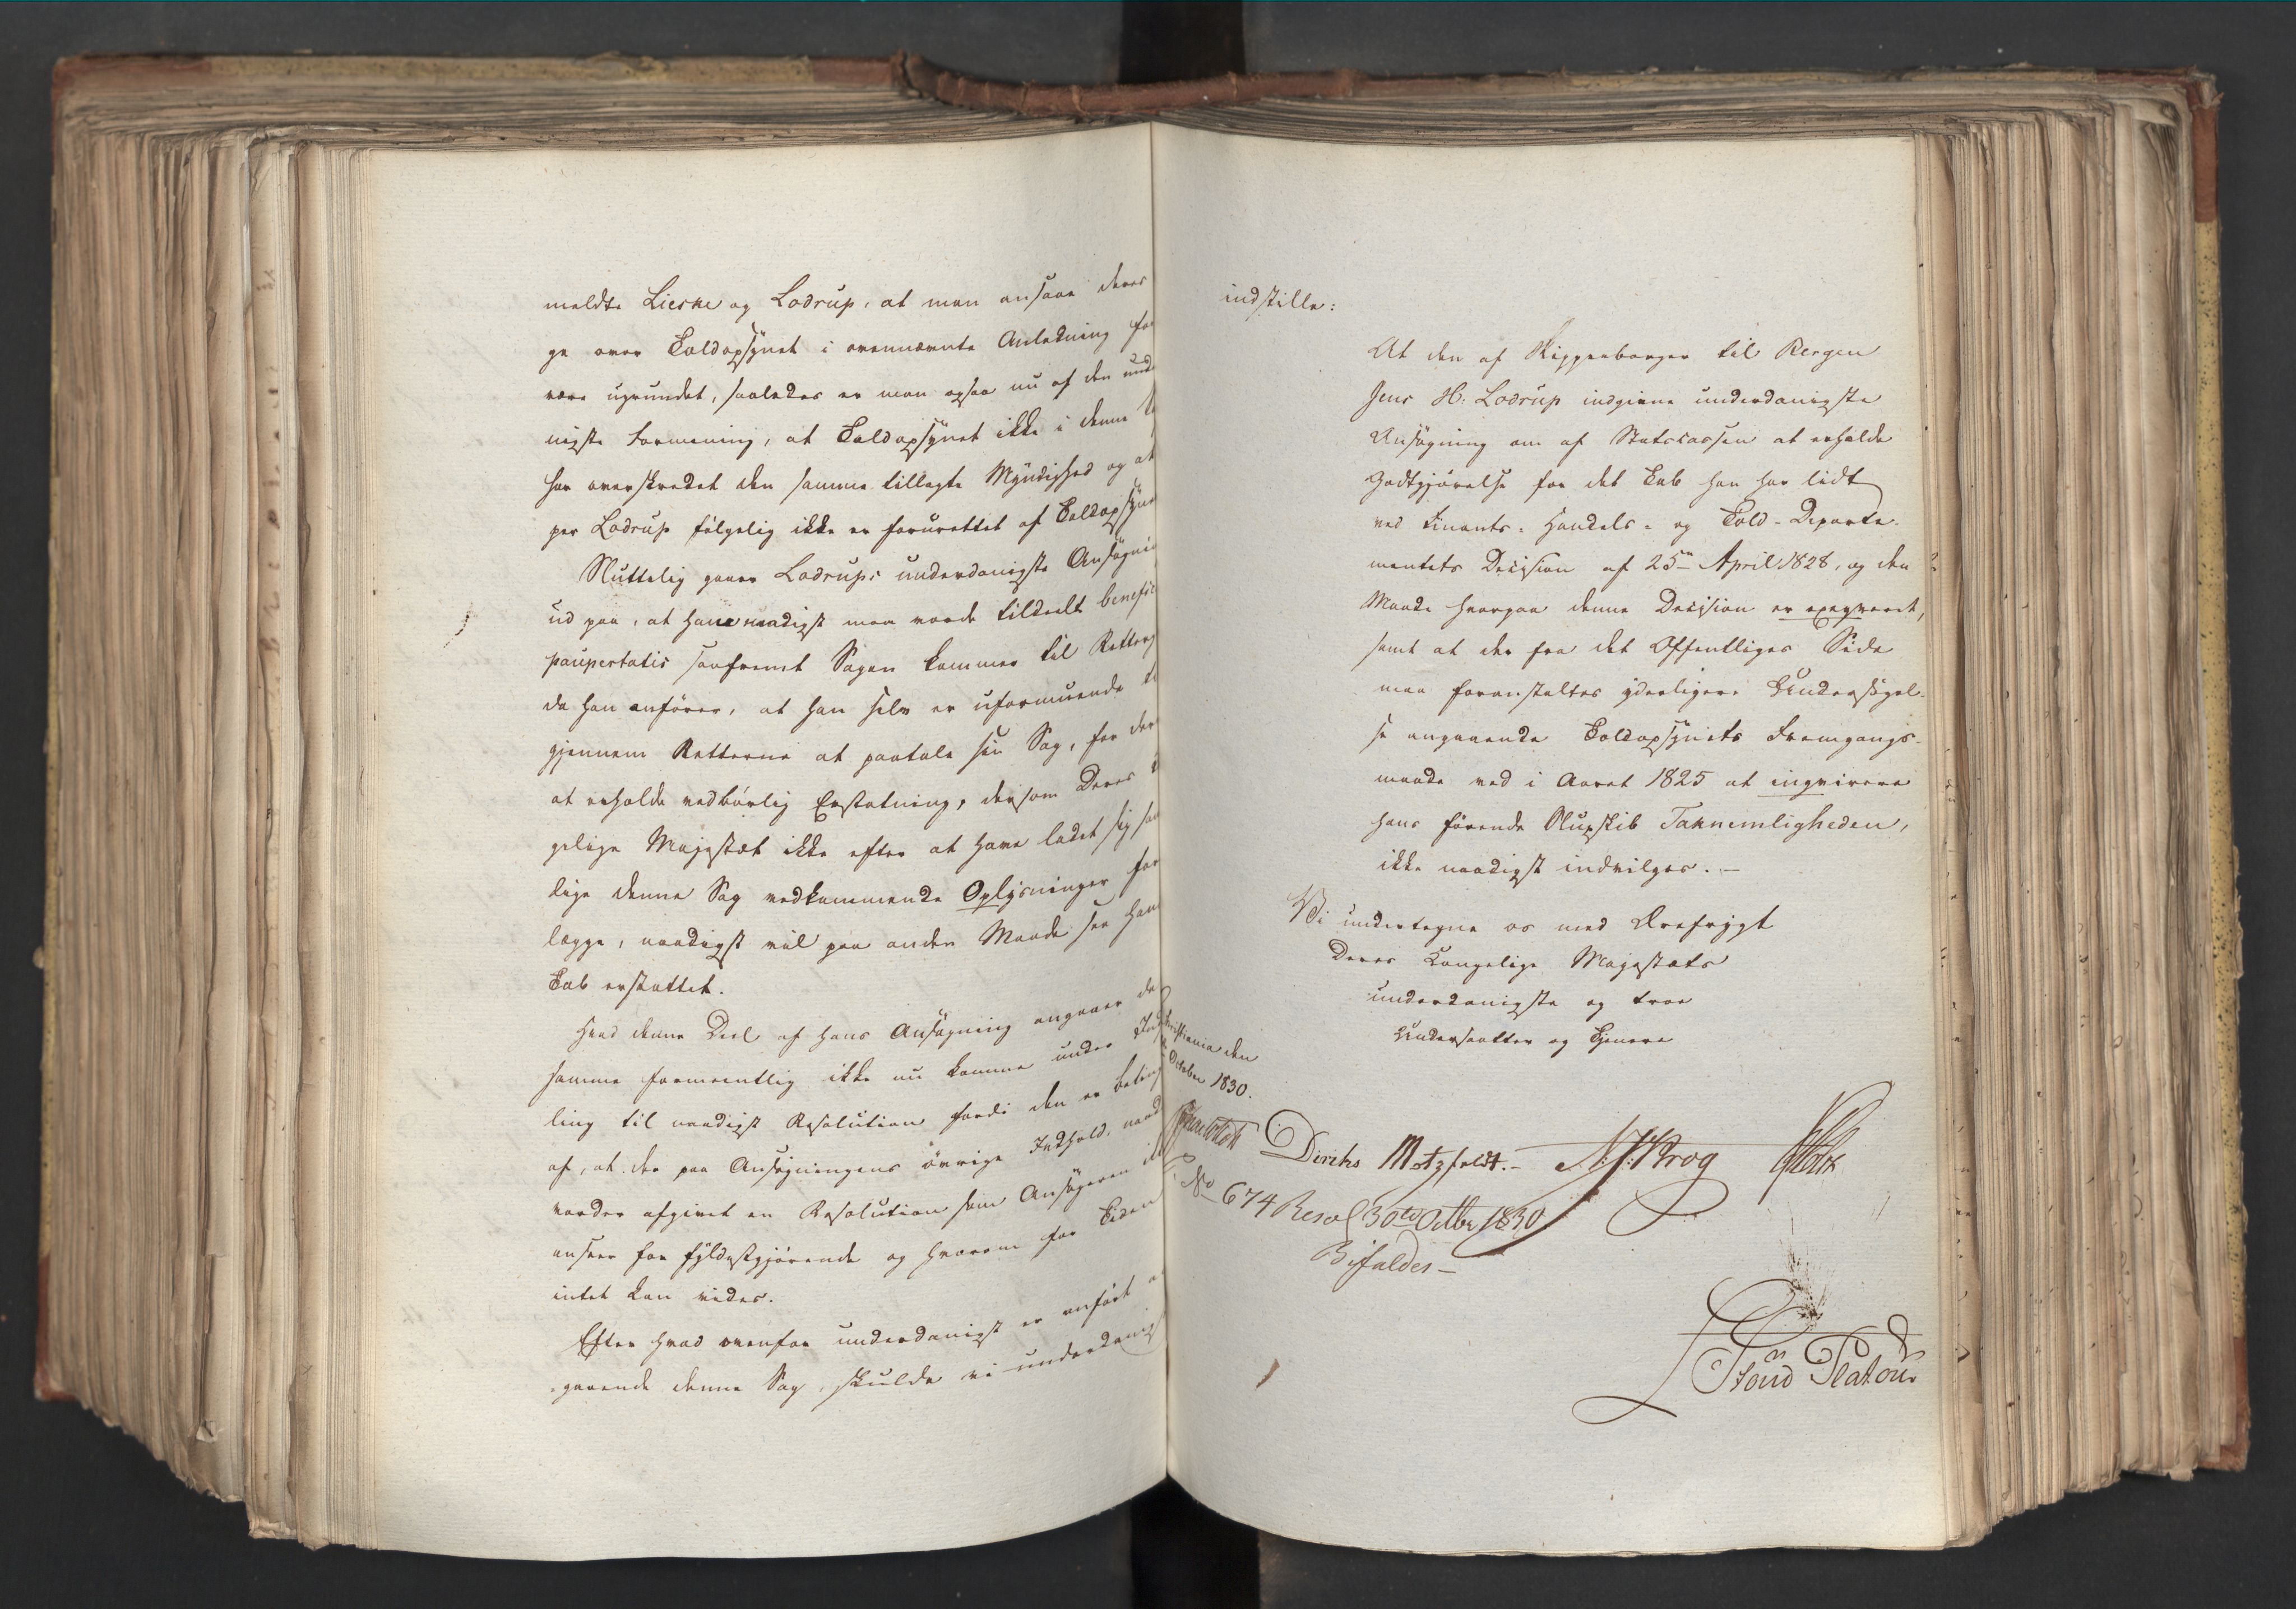 meldte Lieske og Lodrup, at man ansaae deres
ge over Toldopsÿnet i ovennævnte Anledning for
være ugrundet, saaledes er man ogsaa nu af den und
nigste Formening, at Toldopsÿnet ikke i denne
har overskredet den samme tillagte Mÿndighed og at
per Lodrup følgelig ikke er forurettet af Toldopsÿne
Sluttelig gaaer Lodrups underdanigste Ansøgni
ud paa, at ham naadigst maa vorde tildeelt benefic
paupertatis saafremt Sagen kommer til Retterg
da han anfører, at han selv er uformuende
gjennem Retterne at paatale sin Sag, for der
at erholde vedbørlig Erstatning, dersom Deres
gelige Majestæt ikke efter at have ladet sig
lige denne Sag vedkommende Oplÿsninger fore
lægge, naadigst vil paa anden Maade see hans
Tab erstattet.
Hvad denne Deel af hans Ansøgning angaaer da
samme formeentlig ikke nu komme under Ind
ling til naadigst Resolution fordi den er beting
af, at der paa Ansøgningens øvrige Indhold, naad
vorder afgivet en Resolution som Ansøgeren
anseer for fÿldestgjørende og hvorom for Tiden
intet kan vides.
Efter hvad ovenfor underdanigst er anført
gaaende denne Sag, skulde vi underdanigst
indstille:
At den af Skipperborger til Bergen
Jens H: Lodrup indgivne underdanigste
Ansøgning om af Statscassen at erholde
Godtgjørelse for det Tab han har lidt
ved Finants- Handels- og Told-Departe-
mentets Decision af 25de April 1828, og den
Maade hvorpaa denne Decision er exeqveret,
samt at der fra det Offentliges Side
maa foranstaltes ÿderligere Undersøgel-
se angaaende Toldopsÿnets Fremgangs-
maade ved i Aaret 1825 at inqvirere
hans førende Slupskib Taknemligheden,
ikke naadigst indvilges. -
Vi undertegne os med Ærefrÿgt
Deres Kongelige Majestæts
underdanigste og troe
Undersaatter og Tjenere
Christiania den
October 1830.
Diriks Motzfeldt. - Krog
No 674 Resol 30te Octbr 1830
Bifaldes -